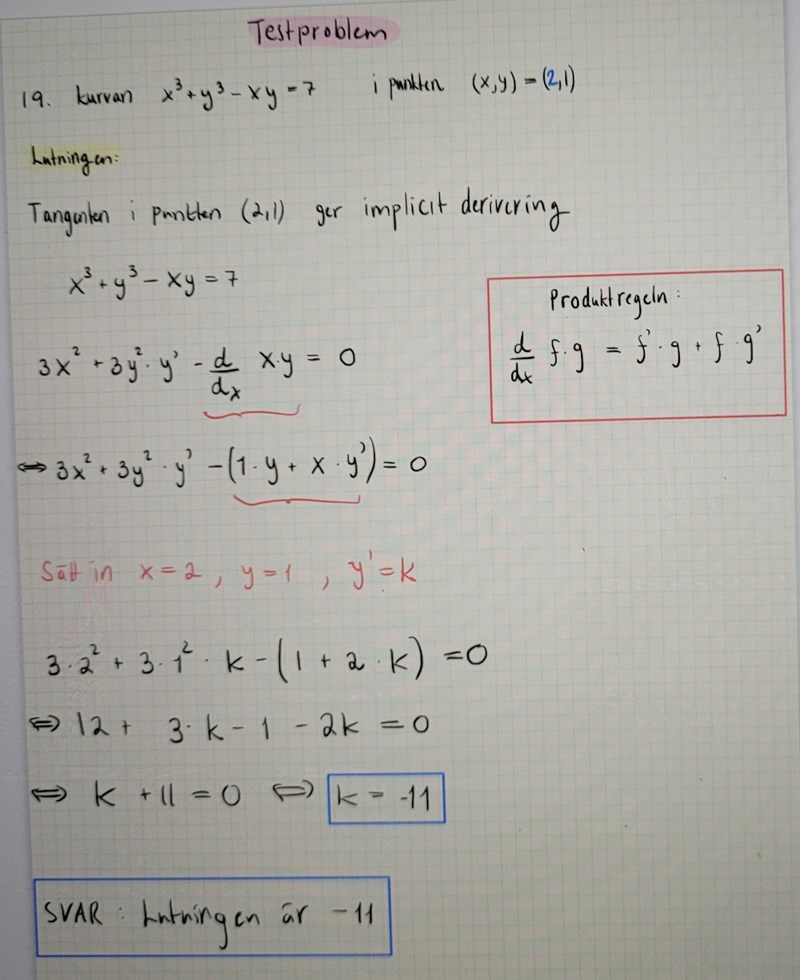 Testproblem
19. kurvan x³ + y³ - xy = 7 i punkten (x,y) = (2,1)
Lutningen:
Tangenten i punkten (2,1) ger implicit derivering
x³ + y³ - xy = 7
Produktregeln:
d/dx f·g = f'·g + f·g'
3x² + 3y²·y' - d/dx x·y = 0
⇔ 3x² + 3y²·y' - (1·y + x·y') = 0
Sätt in x = 2, y = 1, y' = k
3·2² + 3·1²·k - (1 + 2·k) = 0
⇔ 12 + 3·k - 1 - 2k = 0
⇔ k + 11 = 0 ⇔ k = -11
SVAR: Lutningen är -11